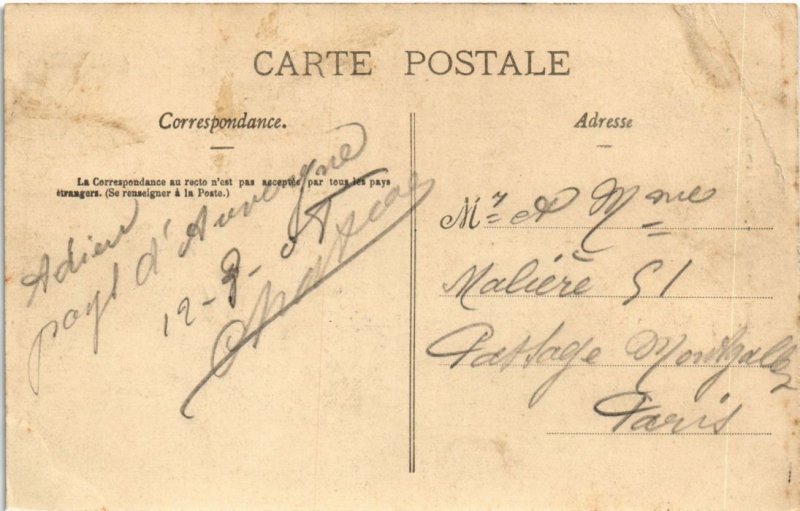 CARTE POSTALE
Correspondance.
La Correspondance au recto n'est pas acceptée par tous les pays
étrangers. (Se renseigner à la Poste.)
Adieu
pays d'Auvergne
12-9-
Adresse
Mr A Mme
Malière 51
Passage Montgallet
Paris